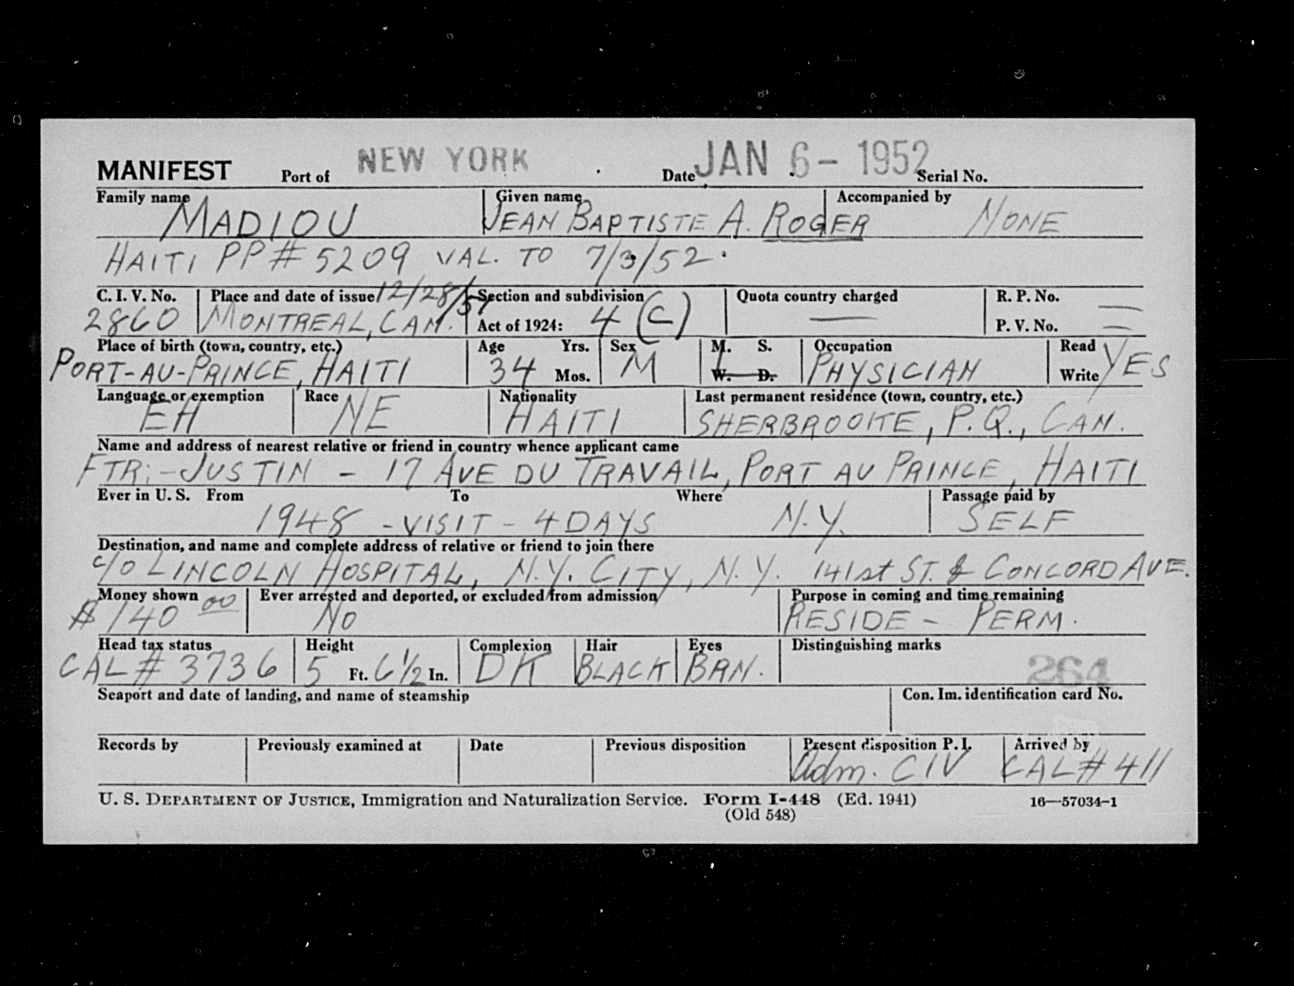 MANIFEST Port of NEW YORK Date JAN 6 - 1952 Serial No.
Family name MADIOU Given name JEAN BAPTISTE A. ROGER Accompanied by NONE
HAITI PP # 5209 VAL. TO 7/3/52.
C. I. V. No. Place and date of issue 12/28/51 Section and subdivision Quota country charged R. P. No. —
2860 MONTREAL, CAN. Act of 1924: 4 (C) — P. V. No. —
Place of birth (town, country, etc.) Age Yrs. Sex M. S. Occupation Read
PORT-AU-PRINCE, HAITI 34 Mos. M W. D. PHYSICIAN Write YES
Language or exemption Race Nationality Last permanent residence (town, country, etc.)
EH NE HAITI SHERBROOKE, P.Q., CAN.
Name and address of nearest relative or friend in country whence applicant came
FTR:-JUSTIN - 17 AVE DU TRAVAIL, PORT AU PRINCE, HAITI
Ever in U. S. From To Where Passage paid by
1948 - VISIT - 4 DAYS N.Y. SELF
Destination, and name and complete address of relative or friend to join there
c/o LINCOLN HOSPITAL, N.Y. CITY, N.Y. 141st ST. & CONCORD AVE.
Money shown Ever arrested and deported, or excluded from admission Purpose in coming and time remaining
$ 140 00 NO RESIDE - PERM.
Head tax status Height Complexion Hair Eyes Distinguishing marks
CAL # 3736 5 Ft. 6 1/2 In. DK BLACK BRN. 264
Seaport and date of landing, and name of steamship Con. Im. identification card No.
Records by Previously examined at Date Previous disposition Present disposition P. I. Arrived by
Adm. CIV CAL # 411
U. S. DEPARTMENT OF JUSTICE, Immigration and Naturalization Service. Form I-448 (Ed. 1941) 16—57034-1
(Old 548)